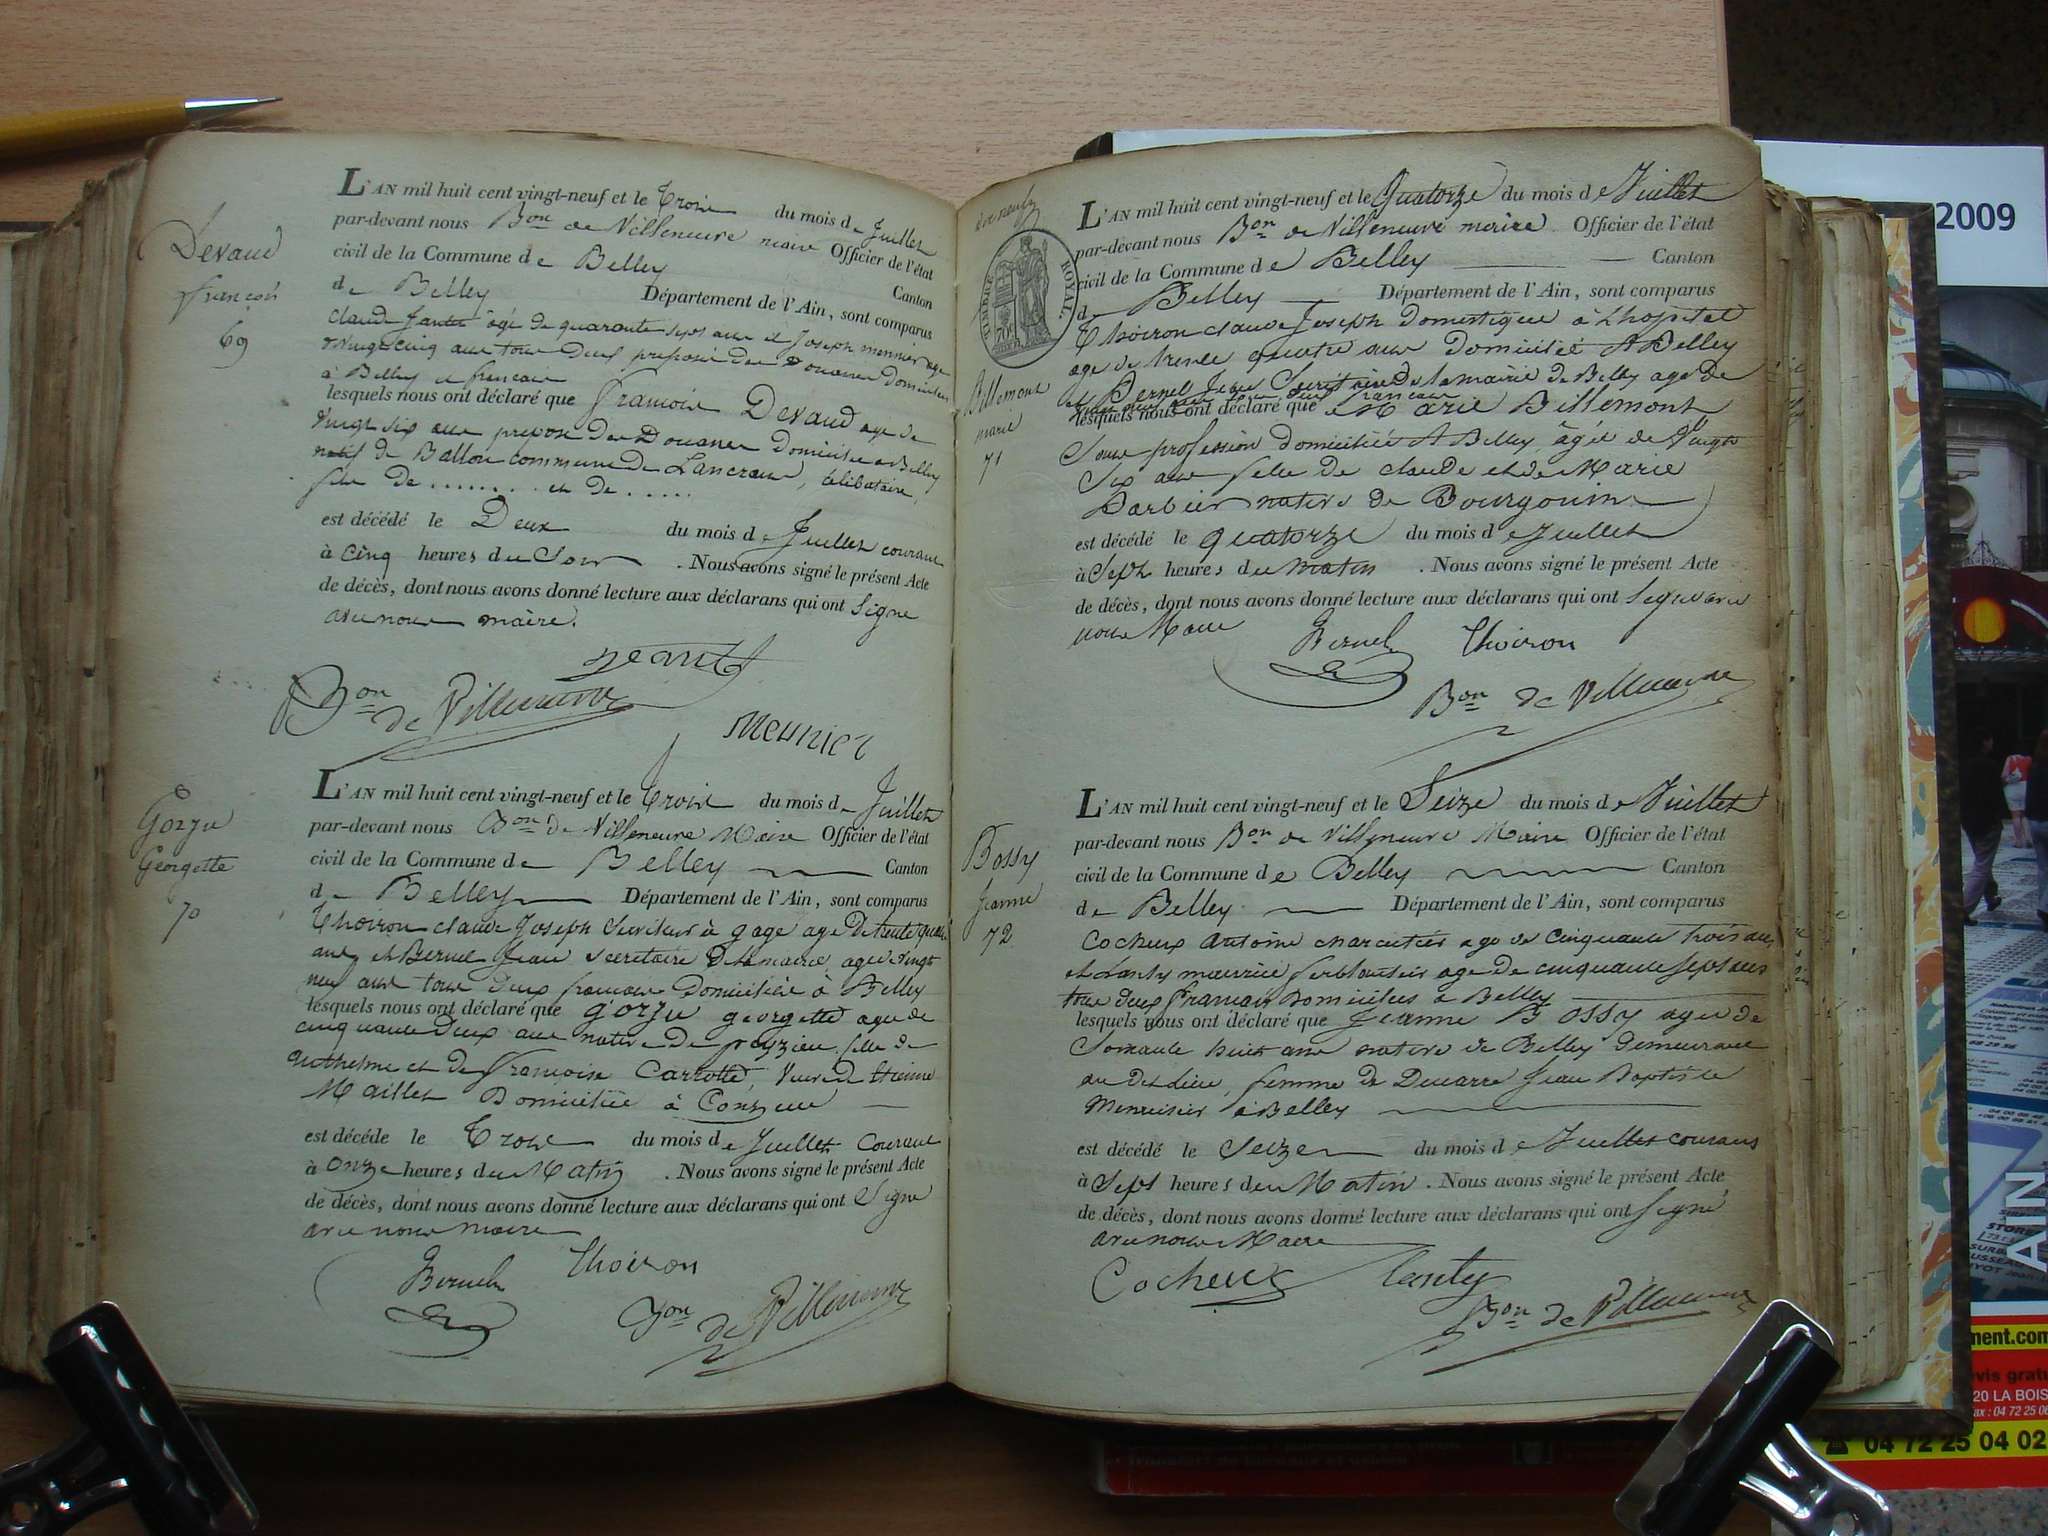 Devaud
françois
69
L'AN mil huit cent vingt-neuf et le Trois du mois de Juillet
par-devant nous Bon de Villeneuve maire Officier de l'état
civil de la Commune de Belley Canton
de Belley Département de l'Ain, sont comparus
Claude Jantet âgé de quarante sept ans et Joseph meunier age
vingt cinq ans tous deux préposé des Douanes Domiciliés
à Belley et francais
lesquels nous ont déclaré que francois Devaud age de
vingt six ans preposé des Douanes Domicilié a Belley
natif de Ballon commune de Lancrans, célibataire
fils de ........ et de .....
est décédé le Deux du mois de Juillet courant
à Cinq heures du Soir . Nous avons signé le présent Acte
de décès, dont nous avons donné lecture aux déclarans qui ont Signe
avec nous maire.
Jeantet
Bon de Villeneuve
Meunier
Gorju
Georgette
70
L'AN mil huit cent vingt-neuf et le Trois du mois de Juillet
par-devant nous Bon de Villeneuve Maire Officier de l'état
civil de la Commune de Belley Canton
de Belley Département de l'Ain, sont comparus
Thoiron claude Joseph Serviteur à gage age De trente quatre
ans et Bernel Jean secretaire De la mairie age vingt
neuf ans tous deux francais Domiciliés à Belley
lesquels nous ont déclaré que gorju georgette agee de
cinquante Deux ans native de peyzieu fille de
Anthelme et de françoise Carrotte, Veuve de Etienne
Maillet Domiciliée à Conzieu
est décéde le Trois du mois de Juillet Courant
à Onze heures du Matin . Nous avons signé le présent Acte
de décès, dont nous avons donné lecture aux déclarans qui ont Signé
avec nous maire
Bernel Thoiron
Bon de Villeneuve
TIMBRE ROYAL
70c
Billemont
marie
71
L'AN mil huit cent vingt-neuf et le Quatorze du mois de Juillet
par-devant nous Bon de Villeneuve maire Officier de l'état
civil de la Commune de Belley Canton
de Belley Département de l'Ain, sont comparus
Thoiron claude Joseph Domestique à L'hopital
age de trente quatre ans Domicilié A Belley
et Bernel Jean Secrétaire De la mairie de Belley age de
vingt neuf ans tous deux francais
lesquels nous ont déclaré que Marie Billemont
Sans profession domiciliée A Belley âgée de Vingt
Six ans fille de claude et de Marie
Barbier native de Bourgouin
est décédé le quatorze du mois de Juillet
à Sept heures du matin . Nous avons signé le présent Acte
de décès, dont nous avons donné lecture aux déclarans qui ont Signé avec
nous Maire
Bernel Thoiron
Bon de Villeneuve
Bossy
Jeanne
72
L'AN mil huit cent vingt-neuf et le Seize du mois de Juillet
par-devant nous Bon de Villeneuve Maire Officier de l'état
civil de la Commune de Belley Canton
de Belley Département de l'Ain, sont comparus
Cocheux Antoine charcutier age de cinquante trois ans
et Lanty maurice ferblantier age de cinquante sept ans
tous deux francais Domiciliés à Belley
lesquels nous ont déclaré que Jeanne Bossy agée de
Soixante huit ans native de Belley demeurant
au dit lieu, femme de Ducarre Jean Baptiste
Menuisier, à Belley
est décédé le Seize du mois de Juillet courant
à Sept heures du Matin . Nous avons signé le présent Acte
de décès, dont nous avons donné lecture aux déclarans qui ont Signé
avec nous Maire
Cocheux Lanty
Bon de Villeneuve
2009
AIN
ment.com
20 LA BOIS
04 72 25 04 02